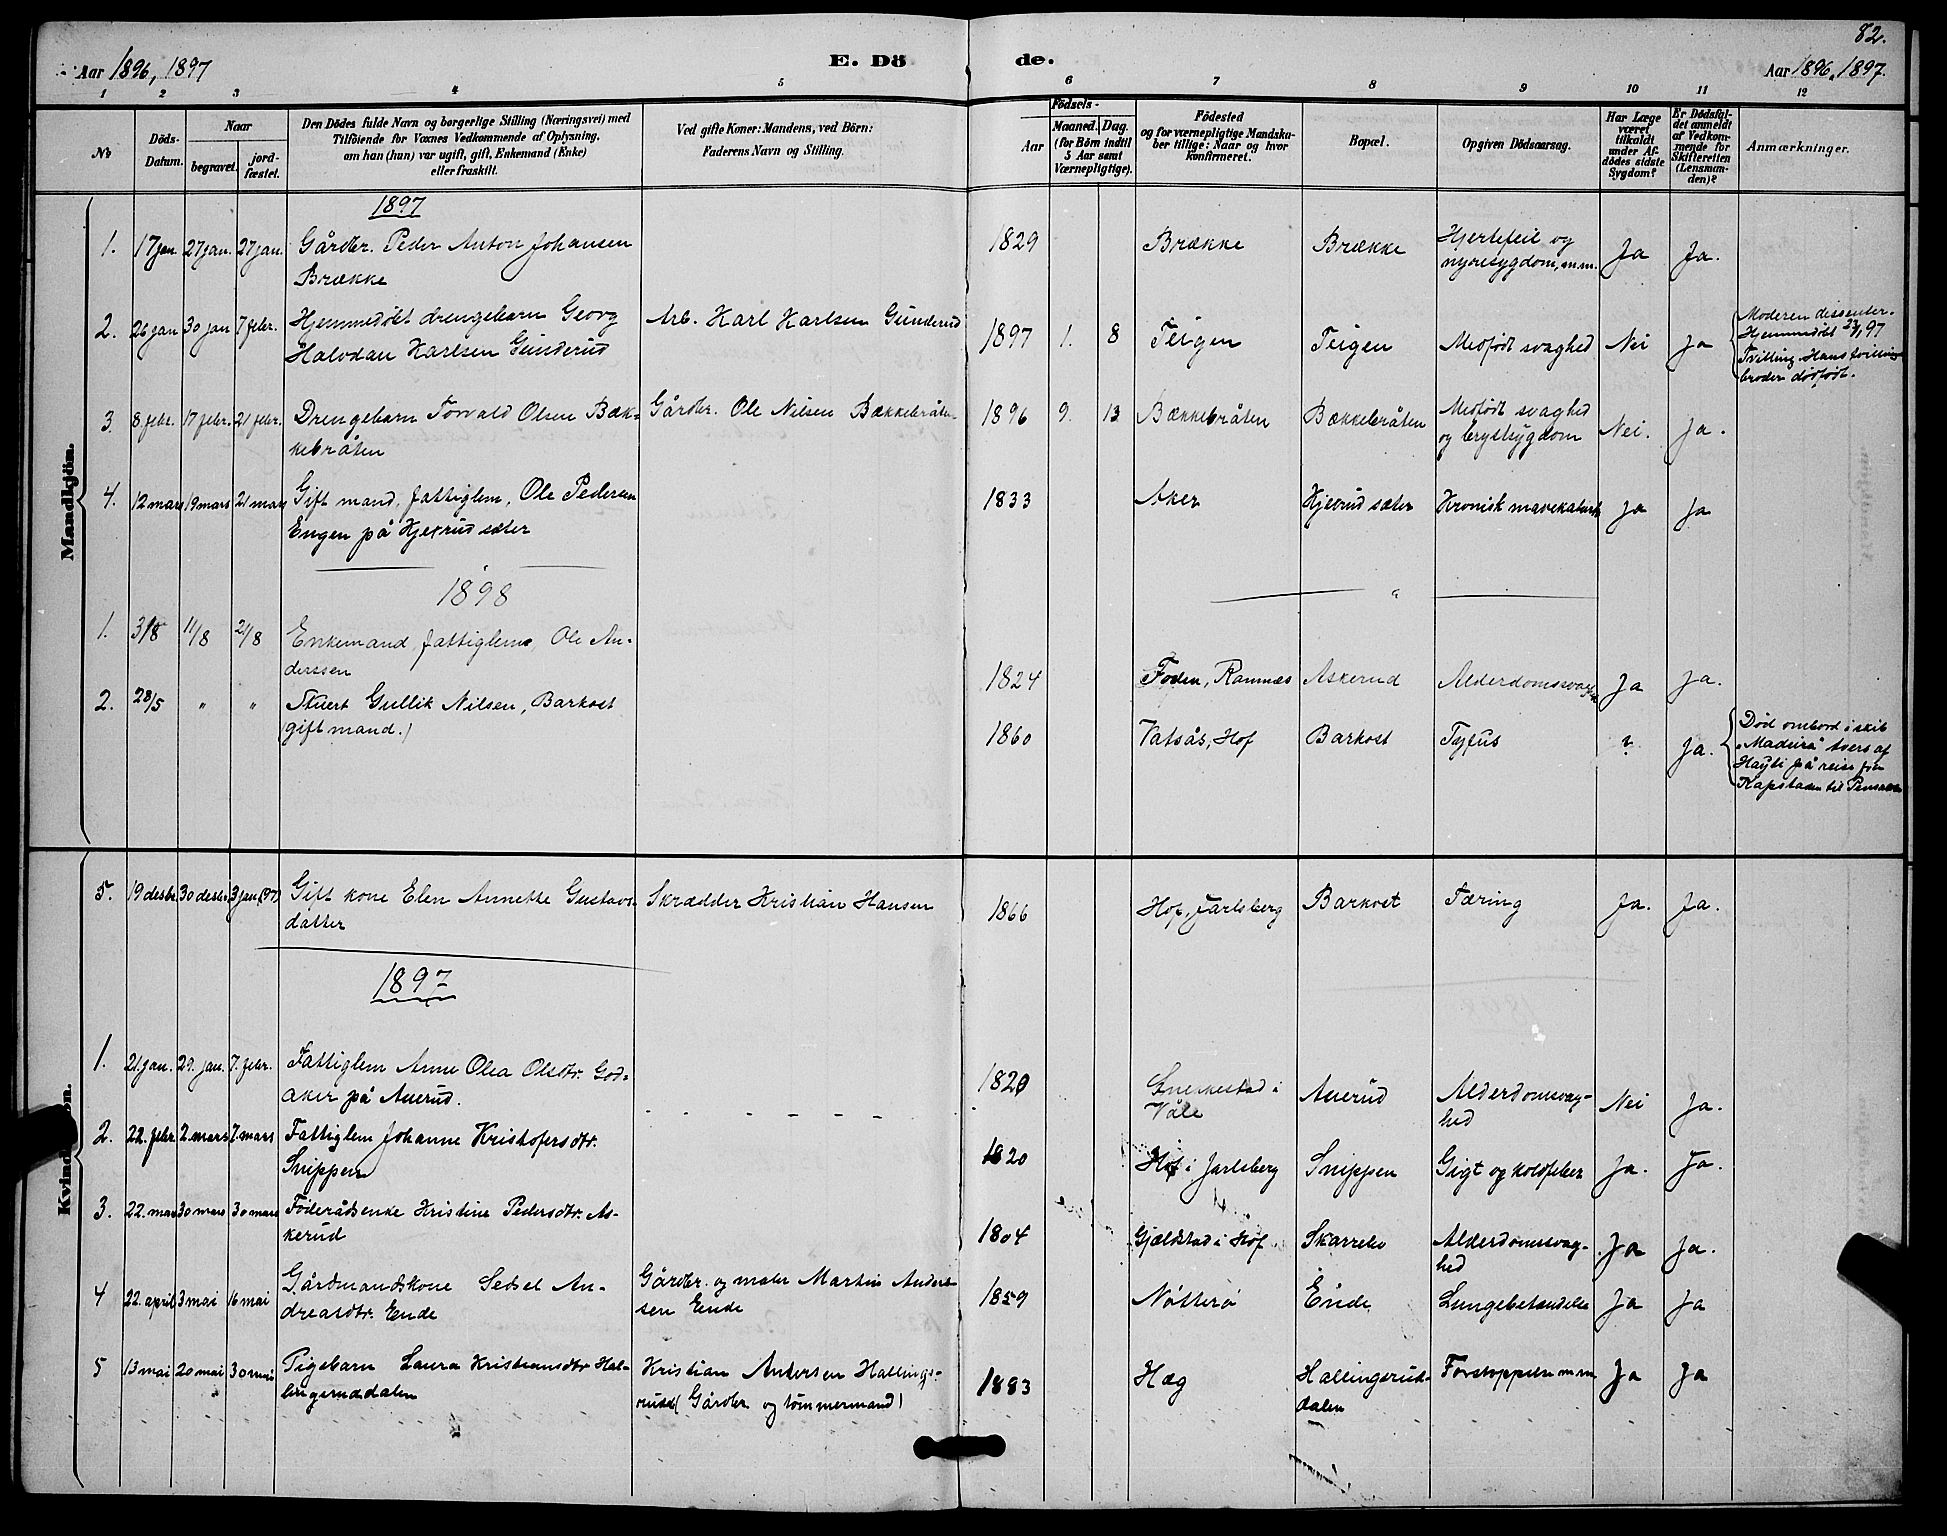 82.
Aar 1896, 1897
E. Dö de.
Aar 1896, 1897.
1 2 3 4 5 6 7 8 9 10 11 12
No
Döds-Datum.
Naar
begravet.
jord-fæstet.
Den Dödes fulde Navn og borgerlige Stilling (Næringsvei) med
Tilföiende for Voxnes Vedkommende af Oplysning,
om han (hun) var ugift, gift, Enkemand (Enke)
eller fraskilt.
Ved gifte Koner: Mandens, ved Börn:
Faderens Navn og Stilling.
Födsels-
Aar
Maaned. Dag.
(for Börn indtil
5 Aar samt
Værnepligtige).
Födested
og for værnepligtige Mandska-
ber tillige: Naar og hvor
konfirmeret.
Bopæl.
Opgiven Dödsaarsag.
Har Læge
været
tilkaldt
under Af-
dödes sidste
Sygdom?
Er Dödsfal-
det anmeldt
af Vedkom-
mende for
Skifteretten
(Lensman-
den)?
Anmærkninger.
Mandkjön.
1897
1. 17 jan. 27 jan. 27 jan. Gårdbr. Peder Anton Johansen
Brække
1829 Brække Brække Hjertefeil og
nyresygdom, m.m. Ja Ja.
2. 26 jan 30 jan 7 febr. Hjemmedøbt drengebarn Georg
Halvdan Karlsen Gunderud
Arb. Karl Karlsen Gunderud
1897 1. 8 Teigen Teigen Medfødt svaghed Nei Ja
Moderen dissenter.
Hjemmedøbt 97
Tvilling. Hans tvilling
broder dødfødt.
3. 8. febr. 17 febr. 21 febr. Drengebarn Torvald Olsen Bæk-
kebråten
Gårdbr. Ole Nilsen Bækkebråten
1896 9. 13 Bækkebråten Bækkebråten Medfødt svaghed
og brystsygdom Nei. Ja.
4. 12 mars 19 mars 21 mars Gift mand, fattiglem, Ole Pedersen
Engen på Hjexrud sæter
1833 Aker Hjexrud sæter Kronisk mavekatarrh Ja Ja
1898
1. 3/8 11/8 21/8 Enkemand, fattiglem, Ole An-
derssen
1824 Foden, Ramnæs Askerud Alderdomssvag Ja Ja.
2. 28/5 " " Stuert Gullik Nilsen, Barkost
(gift mand.)
1860 Vatsås, Hof Barkost Tyfus ? Ja.
Død ombord i skib
"Madeira" tvers af
Hayti på reise fra
Kapstaden til
Kvindekjön.
5. 19 desbr. 30 desbr. 3 jan. (97) Gift kone Elen Annette Gustavs-
datter
Skrædder Kristian Hansen
1866 Hof, Jarlsberg Barkost Tæring Ja. Ja.
1897
1. 21 jan. 29. jan. 7. febr. Fattiglem Anne Olea Olsdtr. God-
aker på Auerud.
1820 i
Våle Auerud Alderdomssvag-
hed Nei Ja.
2. 22. febr 2. mars 7. mars Fattiglem Johanne Kristofersdtr.
Snippen
1820 Hof i Jarlsberg Snippen Gigt og koldfeber Ja. Ja.
3. 22. mars 30 mars 30 mars Føderådsenke Kristine Pedersdtr. As-
kerud
1804 Gjældstad i Hof Skarrebo Alderdomssvag-
hed Ja Ja.
4 22. april 3 mai 16 mai Gårdmandskone Sedsel An-
dreasdtr. Ende
Gårdbr. og maler Martin Anders-
sen Ende
1859 Nøtterø Ende Lungebetændelse Ja Ja
5 13 mai 20 mai 30 mai Pigebarn Laura Kristiansdtr. Hal-
lingsruddalen
Kristian Andersen Hallings-
rudd (Gårdbr. og tømmermand)
1883 Hæg Hallingsrud-
dalen Forstoppelse m.m Ja Ja